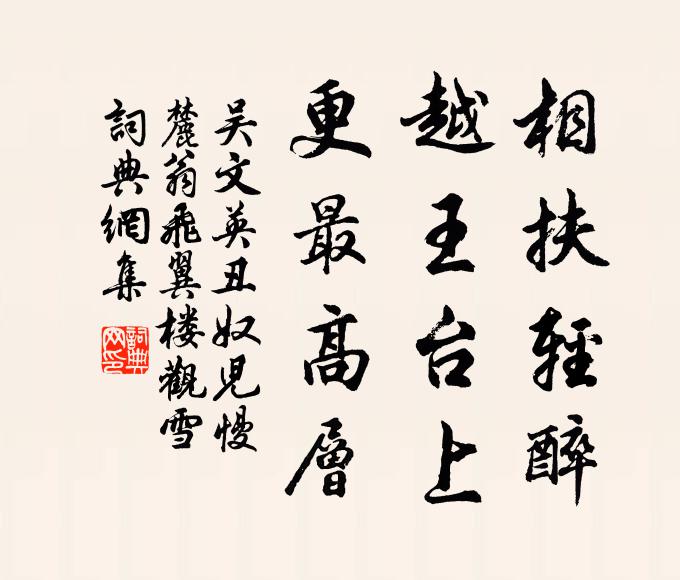 相扶輕醉
越王台上
更最高層
吴文英丑奴兒慢
麓翁飛翼楼觀雪
詞典網集
詞典網印